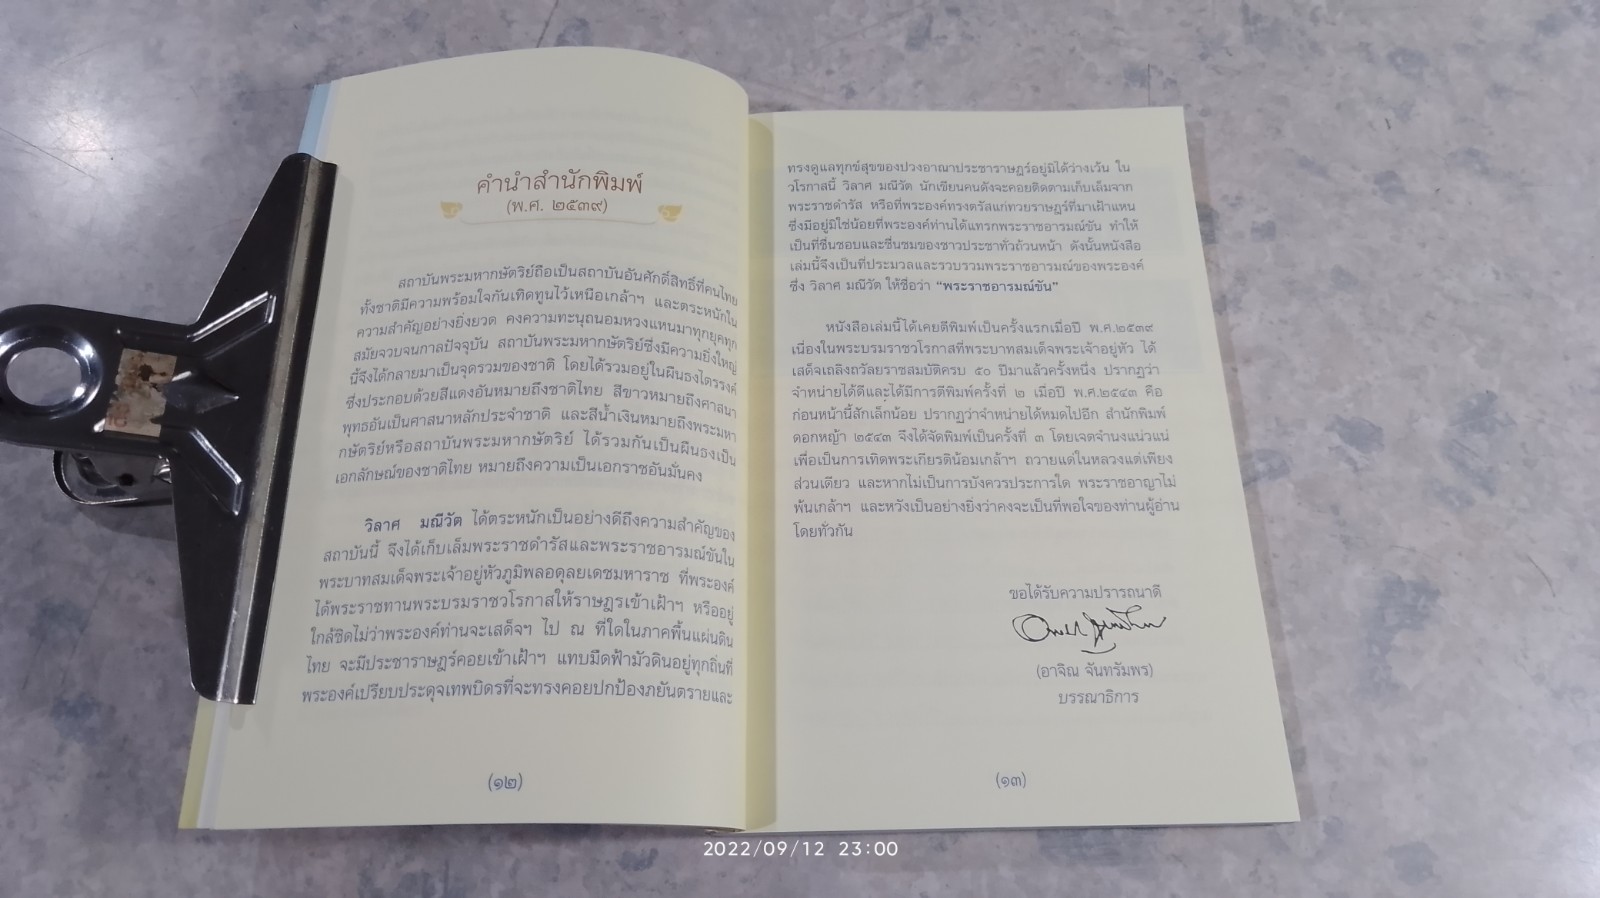 คำนำสำนักพิมพ์
(พ.ศ. ๒๕๓๙)
สถาบันพระมหากษัตริย์ถือเป็นสถาบันอันศักดิ์สิทธิ์ที่คนไทย
ทั้งชาติมีความพร้อมใจกันเทิดทูนไว้เหนือเกล้าฯ และตระหนักใน
ความสำคัญอย่างยิ่งยวด คงความทะนุถนอมหวงแหนมาทุกยุคทุก
สมัยจวบจนกาลปัจจุบัน สถาบันพระมหากษัตริย์ซึ่งมีความยิ่งใหญ่
นี้จึงได้กลายมาเป็นจุดรวมของชาติ โดยได้รวมอยู่ในผืนธงไตรรงค์
ซึ่งประกอบด้วยสีแดงอันหมายถึงชาติไทย สีขาวหมายถึงศาสนา
พุทธอันเป็นศาสนาหลักประจำชาติ และสีน้ำเงินหมายถึงพระมหา
กษัตริย์หรือสถาบันพระมหากษัตริย์ ได้รวมกันเป็นผืนธงเป็น
เอกลักษณ์ของชาติไทย หมายถึงความเป็นเอกราชอันมั่นคง
วิลาศ มณีวัต ได้ตระหนักเป็นอย่างดีถึงความสำคัญของ
สถาบันนี้ จึงได้เก็บเล็มพระราชดำรัสและพระราชอารมณ์ขันใน
พระบาทสมเด็จพระเจ้าอยู่หัวภูมิพลอดุลยเดชมหาราช ที่พระองค์
ได้พระราชทานพระบรมราชวโรกาสให้ราษฎรเข้าเฝ้าฯ หรืออยู่
ใกล้ชิดไม่ว่าพระองค์ท่านจะเสด็จฯ ไป ณ ที่ใดในภาคพื้นแผ่นดิน
ไทย จะมีประชาราษฎร์คอยเข้าเฝ้าฯ แทบมืดฟ้ามัวดินอยู่ทุกถิ่นที่
พระองค์เปรียบประดุจเทพบิดรที่จะทรงคอยปกป้องภยันตรายและ
(๑๒)
ทรงดูแลทุกข์สุขของปวงอาณาประชาราษฎร์อยู่มิได้ว่างเว้น ใน
วโรกาสนี้ วิลาศ มณีวัต นักเขียนคนดังจะคอยติดตามเก็บเล็มจาก
พระราชดำรัส หรือที่พระองค์ทรงตรัสแก่ทวยราษฎร์ที่มาเฝ้าแหน
ซึ่งมีอยู่มิใช่น้อยที่พระองค์ท่านได้แทรกพระราชอารมณ์ขัน ทำให้
เป็นที่ชื่นชอบและชื่นชมของชาวประชาทั่วถ้วนหน้า ดังนั้นหนังสือ
เล่มนี้จึงเป็นที่ประมวลและรวบรวมพระราชอารมณ์ของพระองค์
ซึ่ง วิลาศ มณีวัต ให้ชื่อว่า “พระราชอารมณ์ขัน”
หนังสือเล่มนี้ได้เคยตีพิมพ์เป็นครั้งแรกเมื่อปี พ.ศ.๒๕๓๙
เนื่องในพระบรมราชวโรกาสที่พระบาทสมเด็จพระเจ้าอยู่หัว ได้
เสด็จเถลิงถวัลยราชสมบัติครบ ๕๐ ปีมาแล้วครั้งหนึ่ง ปรากฏว่า
จำหน่ายได้ดีและได้มีการตีพิมพ์ครั้งที่ ๒ เมื่อปี พ.ศ.๒๕๔๓ คือ
ก่อนหน้านี้สักเล็กน้อย ปรากฏว่าจำหน่ายได้หมดไปอีก สำนักพิมพ์
ดอกหญ้า ๒๕๔๓ จึงได้จัดพิมพ์เป็นครั้งที่ ๓ โดยเจตจำนงแน่วแน่
เพื่อเป็นการเทิดพระเกียรติน้อมเกล้าฯ ถวายแด่ในหลวงแต่เพียง
ส่วนเดียว และหากไม่เป็นการบังควรประการใด พระราชอาญาไม่
พ้นเกล้าฯ และหวังเป็นอย่างยิ่งว่าคงจะเป็นที่พอใจของท่านผู้อ่าน
โดยทั่วกัน
ขอได้รับความปรารถนาดี
(อาจิณ จันทรัมพร)
บรรณาธิการ
(๑๓)
2022/09/12 23:00